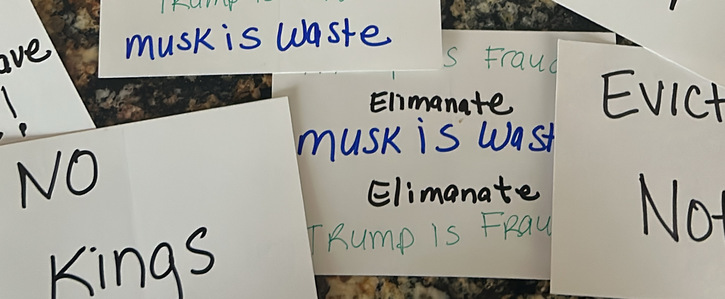 Trump is
musk is Waste
ave
!
NO
Kings
is Frau
Elimanate
musk is Wast
Elimanate
Trump is Frau
Evict
Not